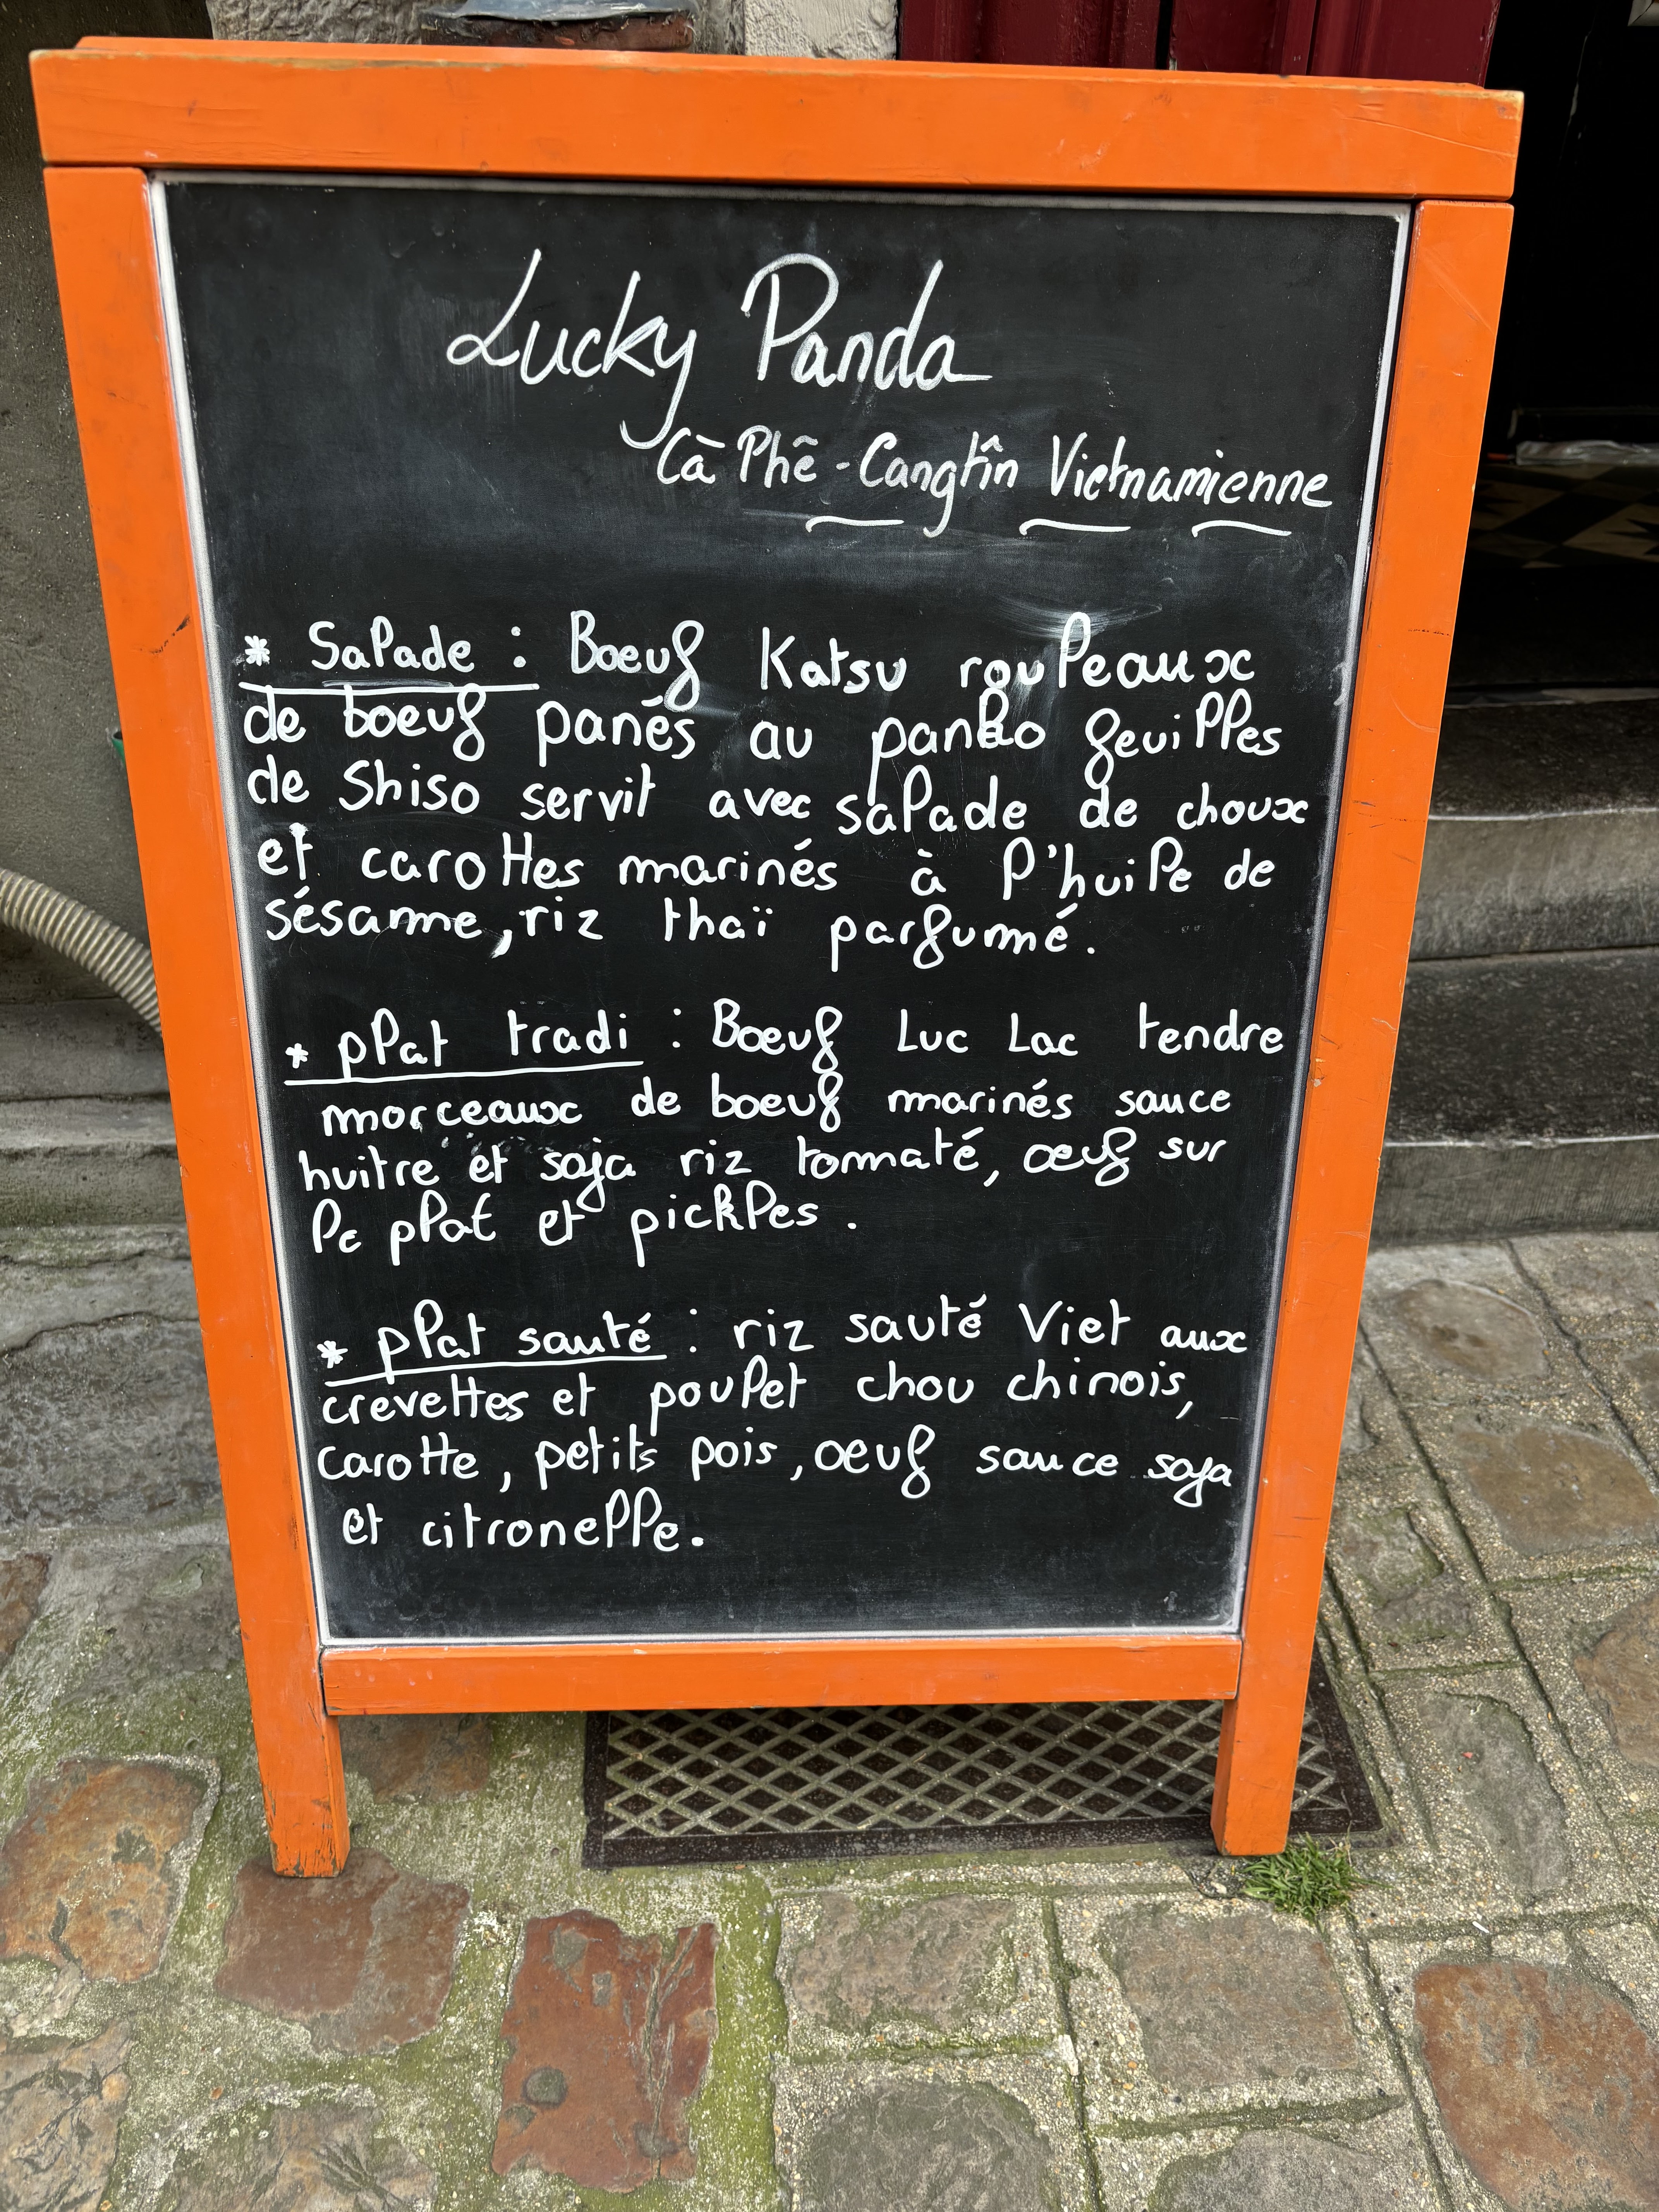 Lucky Panda
Cà Phê - Cangtîn Vietnamienne
* Salade : Boeuf Katsu rouleaux
de boeuf panés au panko feuilles
de Shiso servit avec salade de choux
et carottes marinés à l'huile de
sésame, riz thaï parfumé.
* plat tradi : Boeuf Luc Lac tendre
morceaux de boeuf marinés sauce
huitre et soja riz tomaté, oeuf sur
le plat et pickles.
* plat sauté : riz sauté Viet aux
crevettes et poulet chou chinois,
carotte, petits pois, oeuf sauce soja
et citronelle.